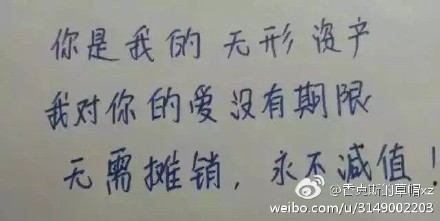 你是我的无形资产
我对你的爱没有期限
无需摊销，永不减值！
@香克斯的草帽xz
weibo.com/u/3149002203